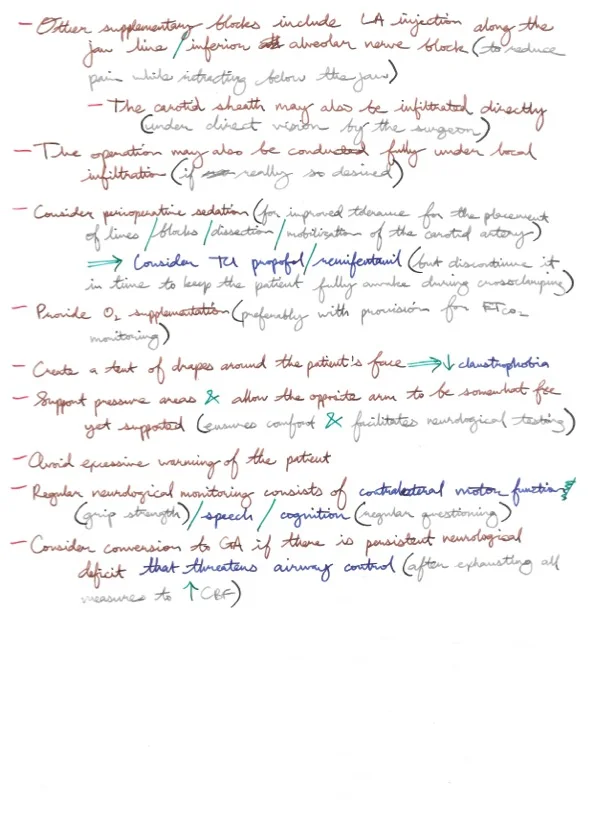 - Other supplementary blocks include LA injection along the
jaw line / inferior alveolar nerve block (to reduce
pain while retracting below the jaw)
- The carotid sheath may also be infiltrated directly
(under direct vision by the surgeon)
- The operation may also be conducted fully under local
infiltration (if really so desired)
- Consider perioperative sedation (for improved tolerance for the placement
of lines / blocks / dissection / mobilization of the carotid artery)
⇒ Consider TCI propofol / remifentanil (but discontinue it
in time to keep the patient fully awake during crossclamping)
- Provide O₂ supplementation (preferably with provision for ETCO₂
monitoring)
- Create a tent of drapes around the patient's face ⇒ ↓ claustrophobia
- Support pressure areas & allow the opposite arm to be somewhat free
yet supported (ensures comfort & facilitates neurological testing)
- Avoid excessive warming of the patient
- Regular neurological monitoring consists of contralateral motor function
(grip strength) / speech / cognition (regular questioning)
- Consider conversion to GA if there is persistent neurological
deficit that threatens airway control (after exhausting all
measures to ↑ CBF)